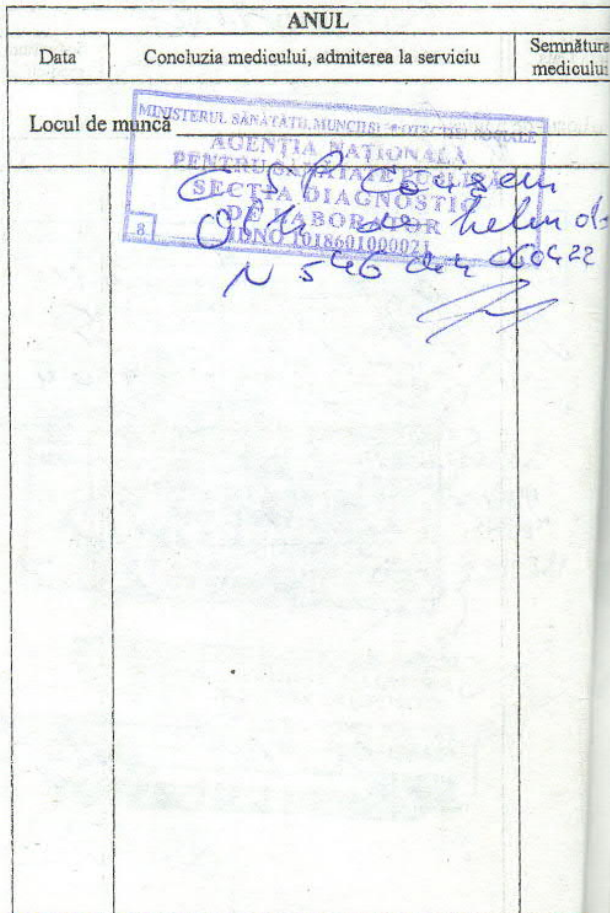 ANUL
Data Concluzia medicului, admiterea la serviciu Semnătura medicului
Locul de muncă
MINISTERUL SĂNĂTĂȚII, MUNCII ȘI PROTECȚIEI SOCIALE
AGENȚIA NAȚIONALĂ
PENTRU SĂNĂTATE PUBLICĂ
SECȚIA DIAGNOSTIC
DE LABORATOR
8 IDNO 1018601000021
CSP
de helm
N 546 din 060422